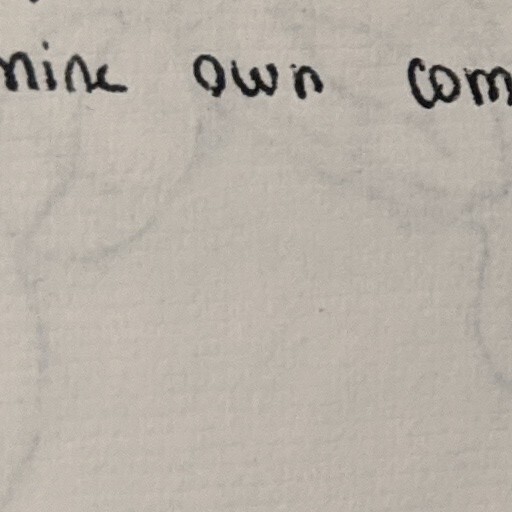 mine own com